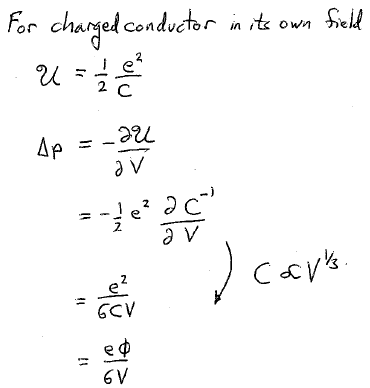 For charged conductor in its own field
𝒰 = 1/2 e²/C
Δp = -∂𝒰/∂V
= -1/2 e² ∂C⁻¹/∂V
C ∝ V^1/3.
= e²/6CV
= eϕ/6V